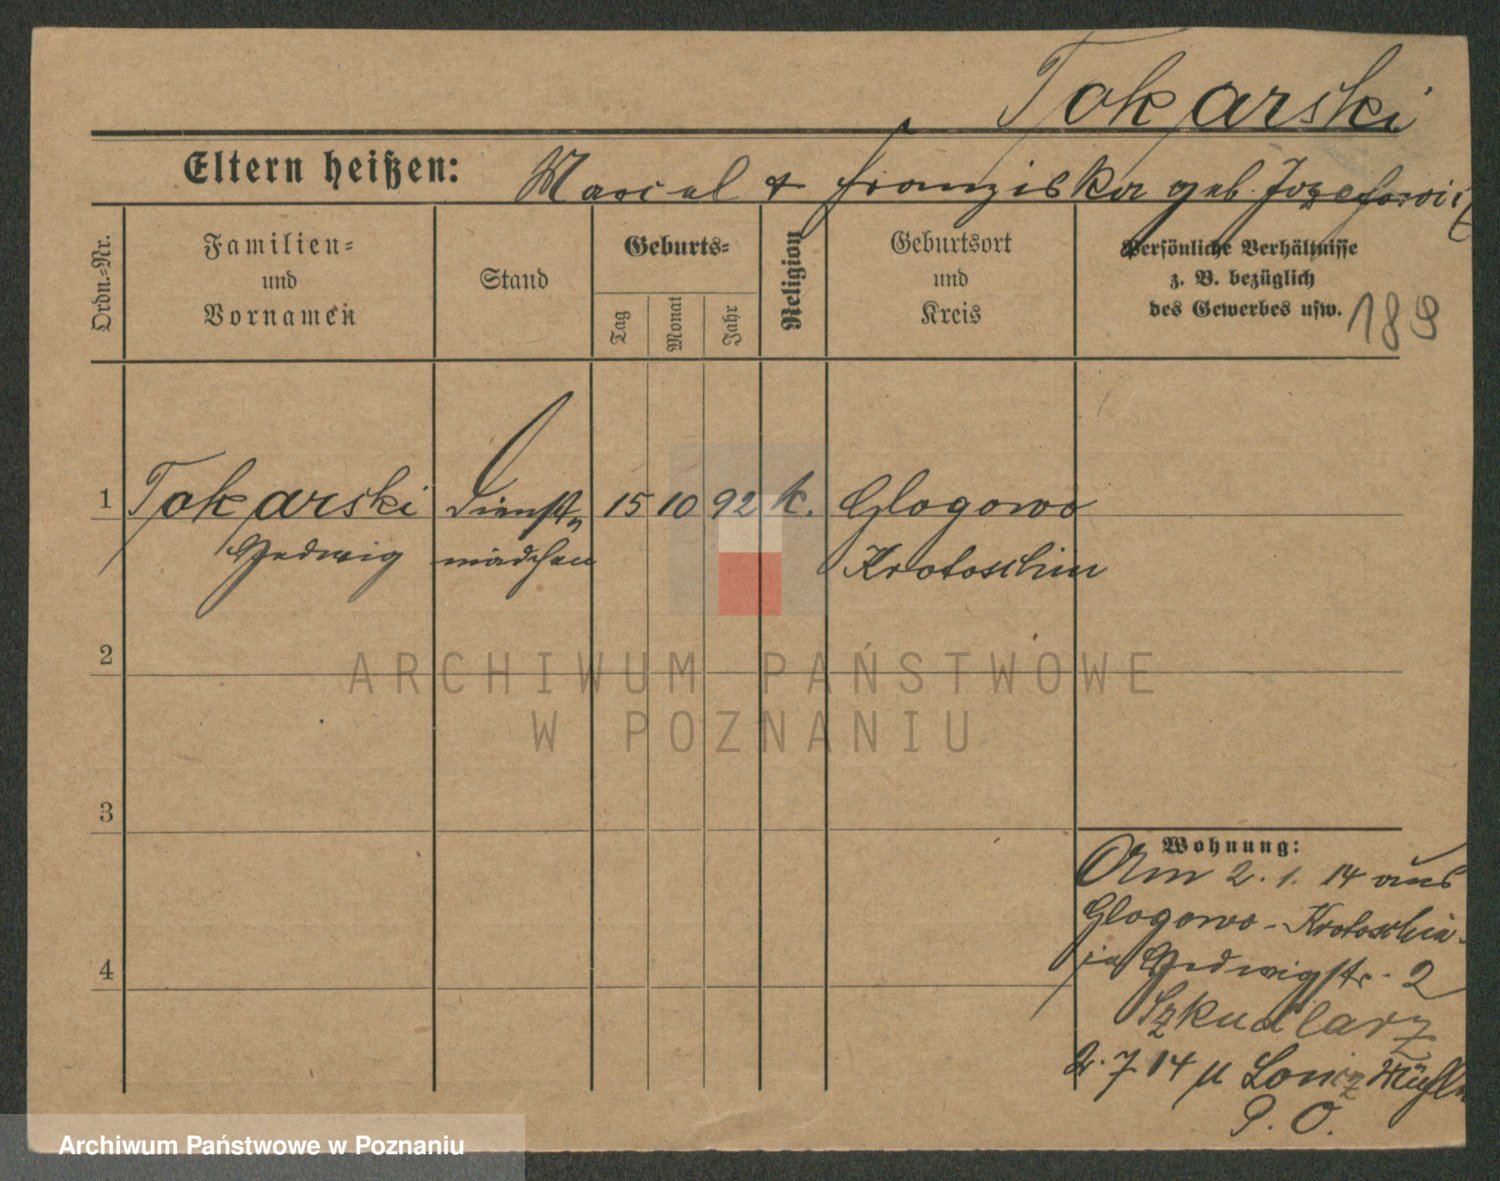 Tokarski
Eltern heißen: Marcel & Franziska geb. Jozefowicz
Ordn.=Nr.
Familien=
und
Vornamen
Stand
Geburts=
Tag
Monat
Jahr
Religion
Geburtsort
und
Kreis
Persönliche Verhältnisse
z. B. bezüglich
des Gewerbes usw.
189
1 Tokarski Dienst= 15 10 92 k. Glogowo
Hedwig mädchen Krotoschin
2
3
4
Wohnung:
Am 2. 1. 14 aus
Glogowo - Krotoschin
in Hedwigstr. 2
Szkudlarz
2. 7 14
P. O.
ARCHIWUM PAŃSTWOWE
W POZNANIU
Archiwum Państwowe w Poznaniu